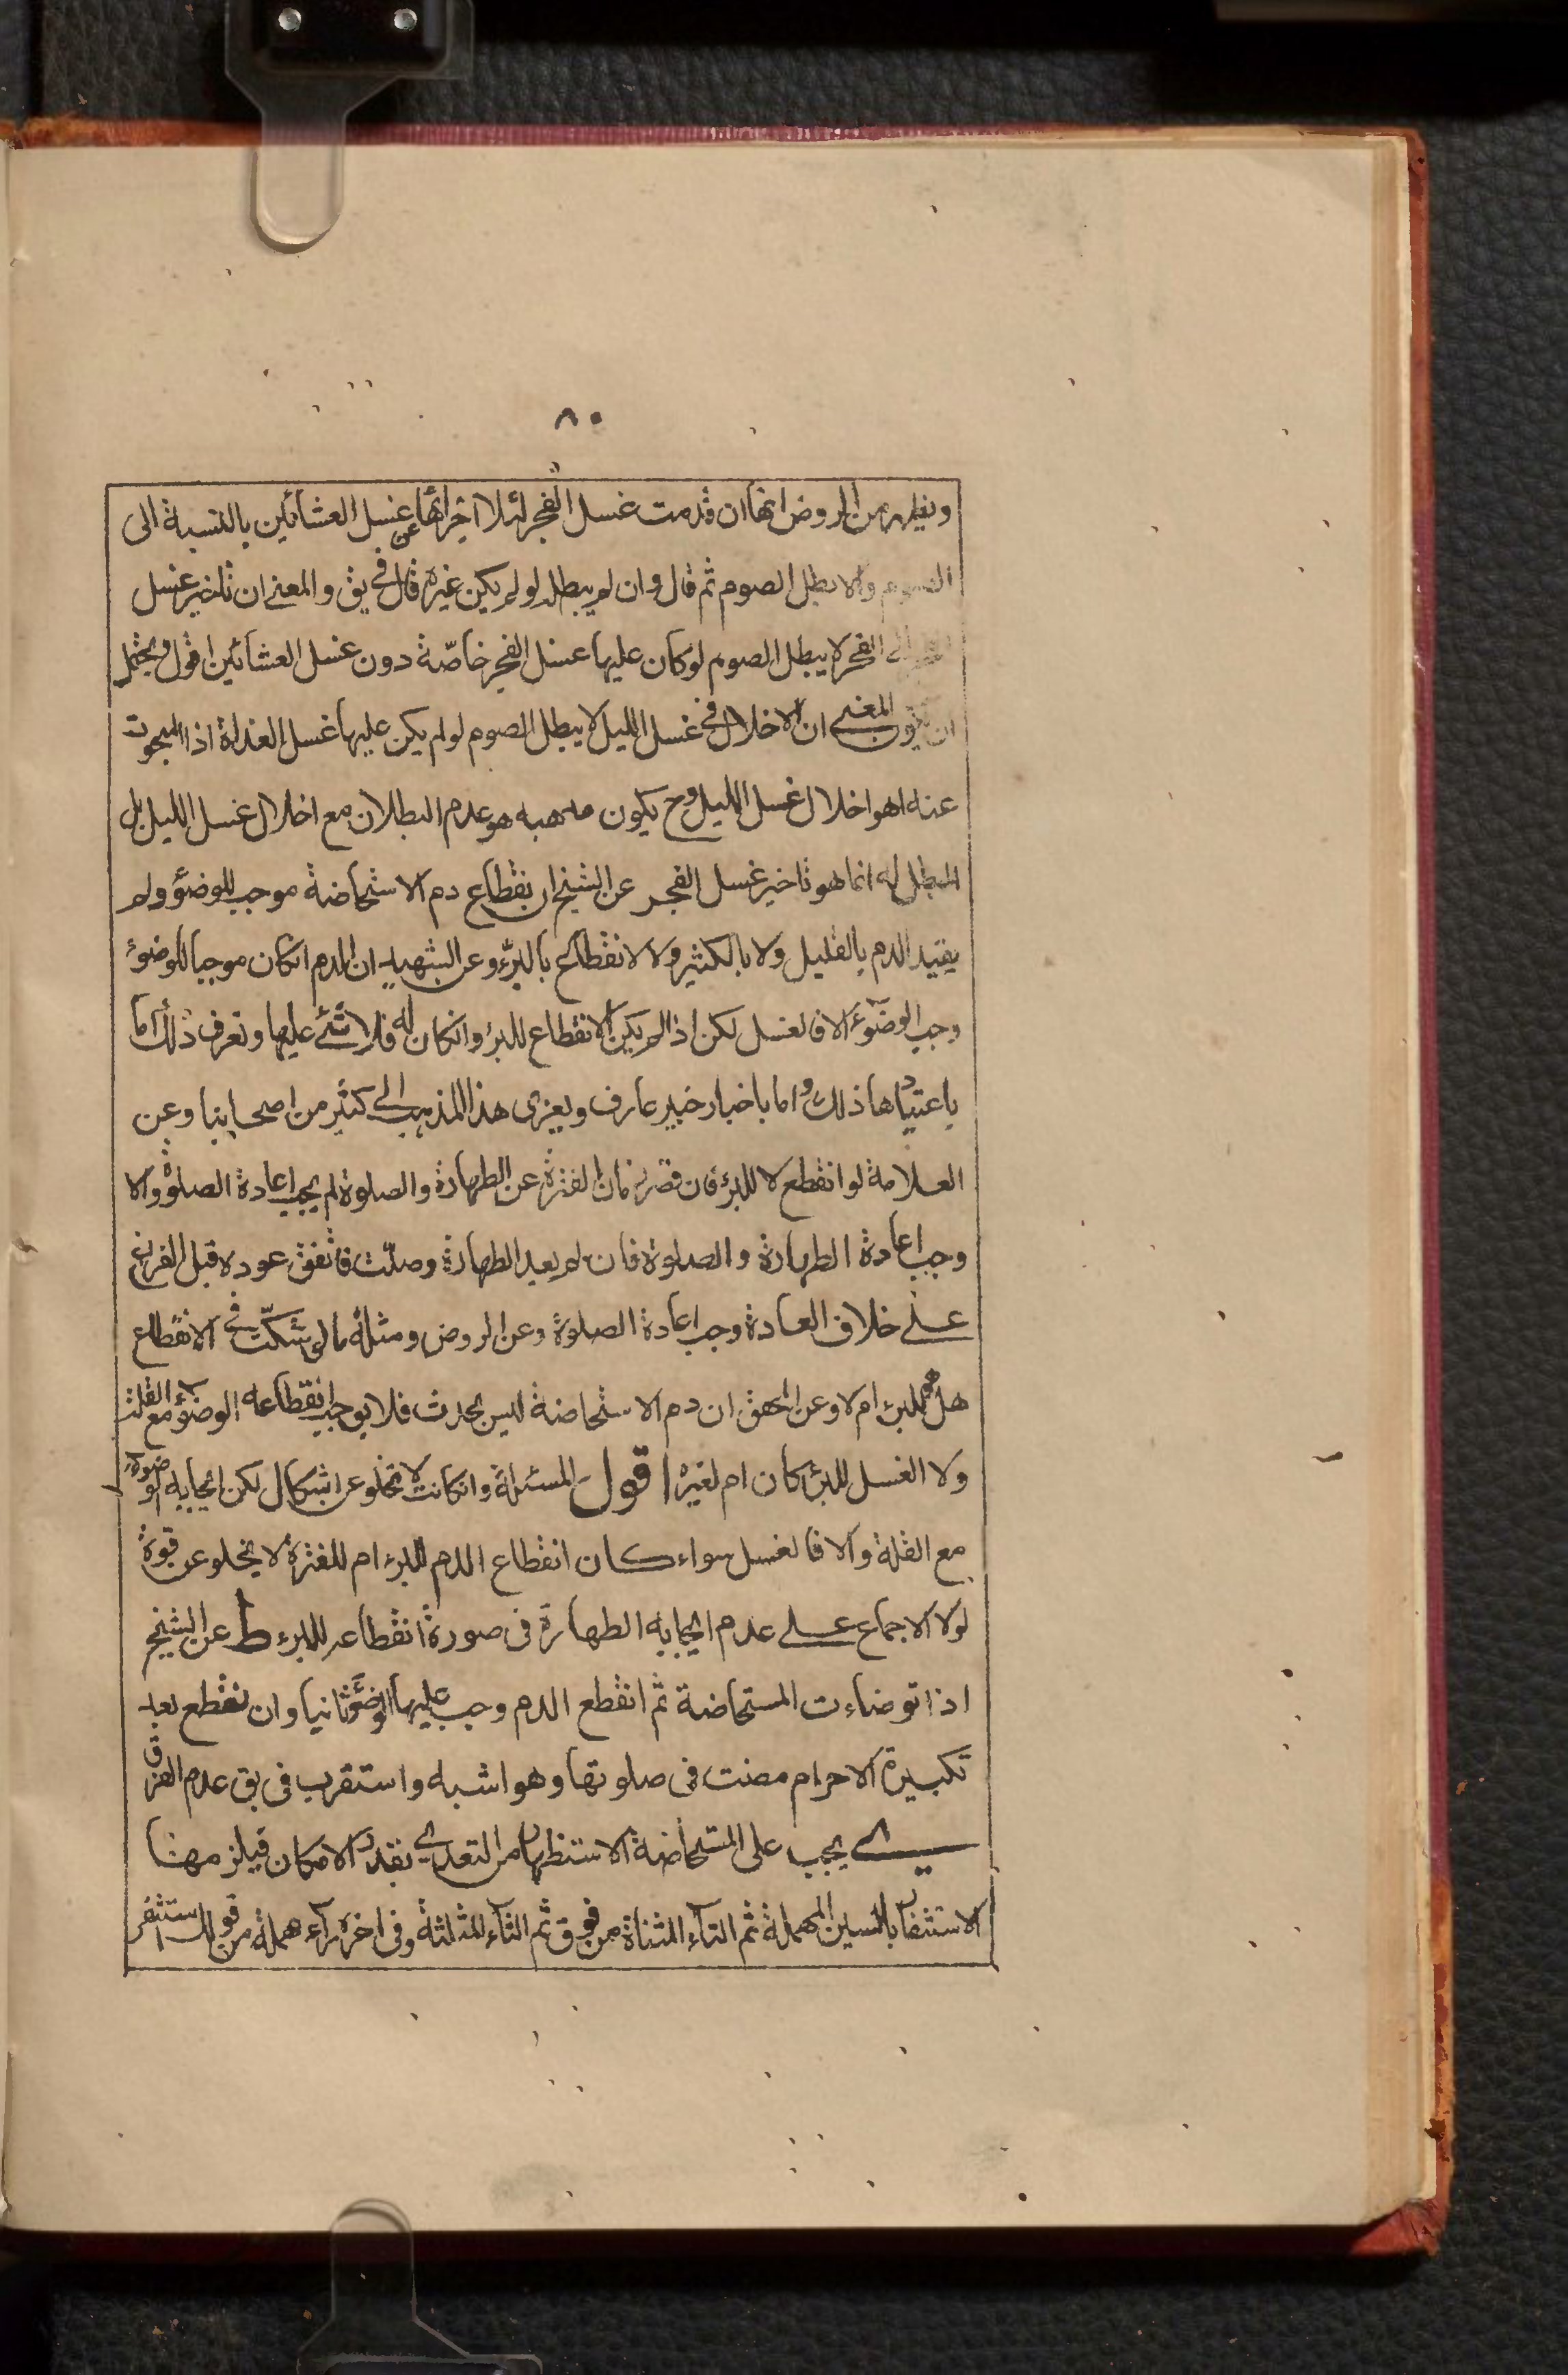 ٨٠
ويظهر من الروض انها ان قدمت غسل الفجر ليلا اجزائها عن غسل العشائين بالنسبة الى
الصوم والا بطل الصوم ثم قال وان لم يبطل لو لم يكن غيره قال في يق والمعنى ان تاخير غسل
الى الفجر لا يبطل الصوم لو كان عليها غسل الفجر خاصّة دون غسل العشائين اقول ويحتمل
ان يكون المعنى ان الاخلال في غسل الليل لا يبطل الصوم لو لم يكن عليها غسل الغداة اذ المبحوث
عنه اهو اخلال غسل الليل وح يكون مذهبه هو عدم البطلان مع اخلال غسل الليل بل
المبطل له انما هو تاخير غسل الفجر عن الشيخ ان نقطاع دم الاستحاضة موجب للوضؤ ولم
يقيد الدم بالقليل ولا بالكثير ولا الانقطاع بالبرء وعن الشهيد ان الدم انكان موجبا للوضوء
وجب الوضوء الا فالغسل لكن اذا لم يكن الانقطاع للبرء وانكان له فلا شئ عليها وتعرف ذلك اما
باعتيادها ذلك واما باخبار خبير عارف ويعزى هذا المذهب الى كثير من اصحابنا وعن
العلامة لو انقطع لا للبرء فان قصر زمان الفترة عن الطهارة والصلوة لم يجب اعادة الصلوة والا
وجب اعادة الطهارة والصلوة فان لم يعد الطهارة وصلّت فاتفق عوده قبل الفراغ
على خلاف العادة وجب اعادة الصلوة وعن الروض ومثله ما لو شكّت في الانقطاع
هل هو للبرء ام لا وعن المحقق ان دم الاستحاضة ليس بحدث فلا يوجب انقطاعه الوضؤ مع القلة
ولا الغسل للبرء كان ام لغيره اقول المسئلة وانكانت لا تخلو عن اشكال لكن ايجابه الوضوء
مع القلة والا فالغسل سواء كان انقطاع الدم للبرء ام للفترة لا يخلو عن قوة
لولا الاجماع على عدم ايجابه الطهارة فى صورة انقطاعه للبرء ط عن الشيخ
اذا توضاءت المستحاضة ثم انقطع الدم وجب عليها الوضؤ ثانيا وان نقطع بعد
تكبيرة الاحرام مضت فى صلوتها وهو اشبه واستقرب فى يق عدم الفرق
ي يجب على المستحاضة الاستظهار من التعدي بقدر الامكان فيلزمها
الاستثفار بالسين المهملة ثم التآء المثناة من فوق ثم الثآء المثلثة وفى اخره رآء مهملة من قولك استثفر